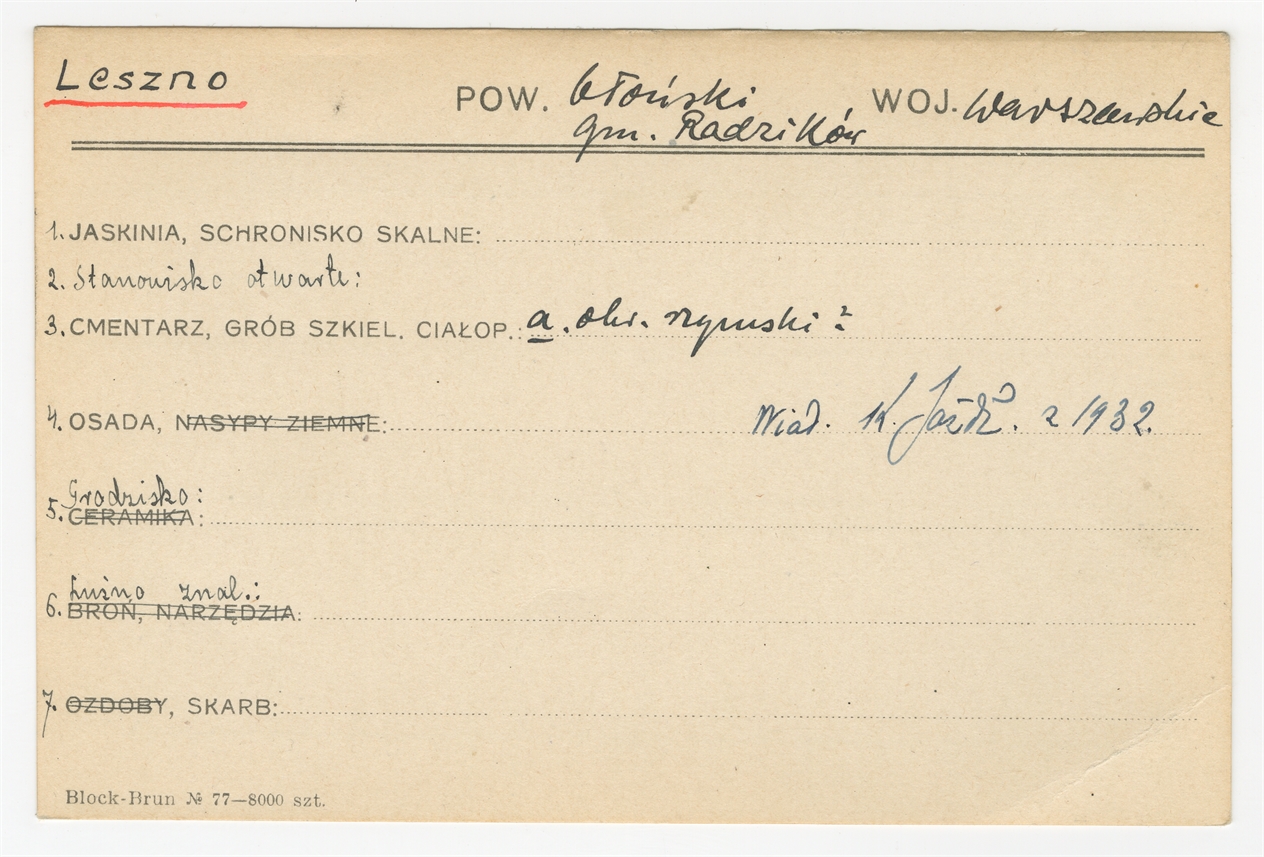 Leszno
POW. błoński WOJ. Warszawskie
gm. Radzików
1. JASKINIA, SCHRONISKO SKALNE:
2. Stanowisko otwarte:
3. CMENTARZ, GRÓB SZKIEL. CIAŁOP.: a. okr. rzymski?
4. OSADA, NASYPY ZIEMNE: Wiad. K. Jażdż. z 1932.
Grodzisko:
5. CERAMIKA:
Luźno znal.:
6. BROŃ, NARZĘDZIA:
7. OZDOBY, SKARB:
Block-Brun № 77—8000 szt.